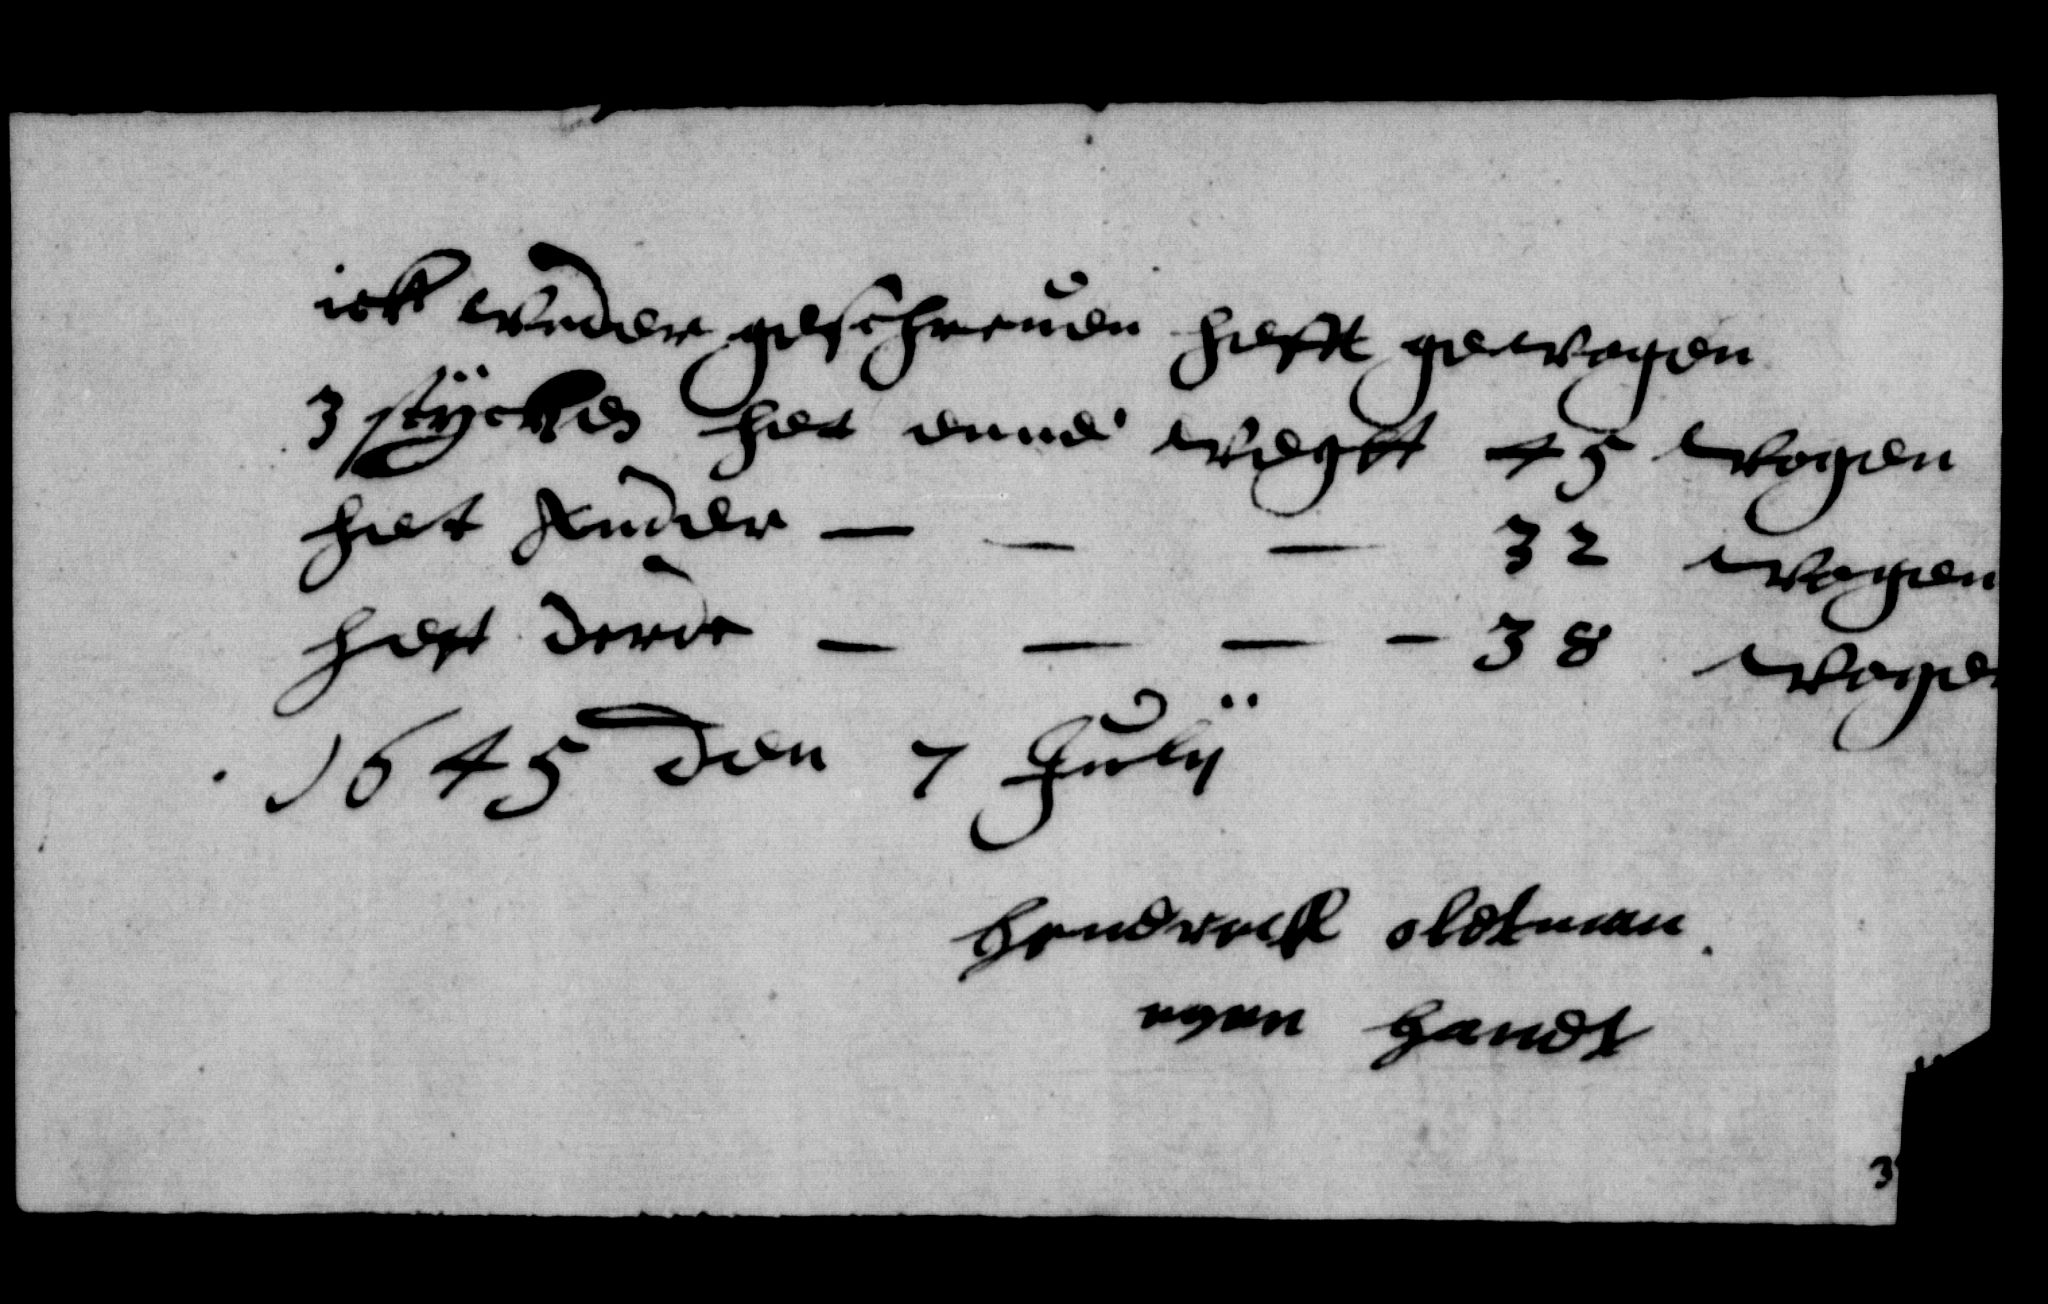 ick vnder geschreuen heft gewogen
3 stÿcken het enne wegtt 45 wogen
het Ander — — — 32 wogen
het derde — — — — 38 woge
1645 den 7 Julij
Hendreck oldtman
egen handt
3